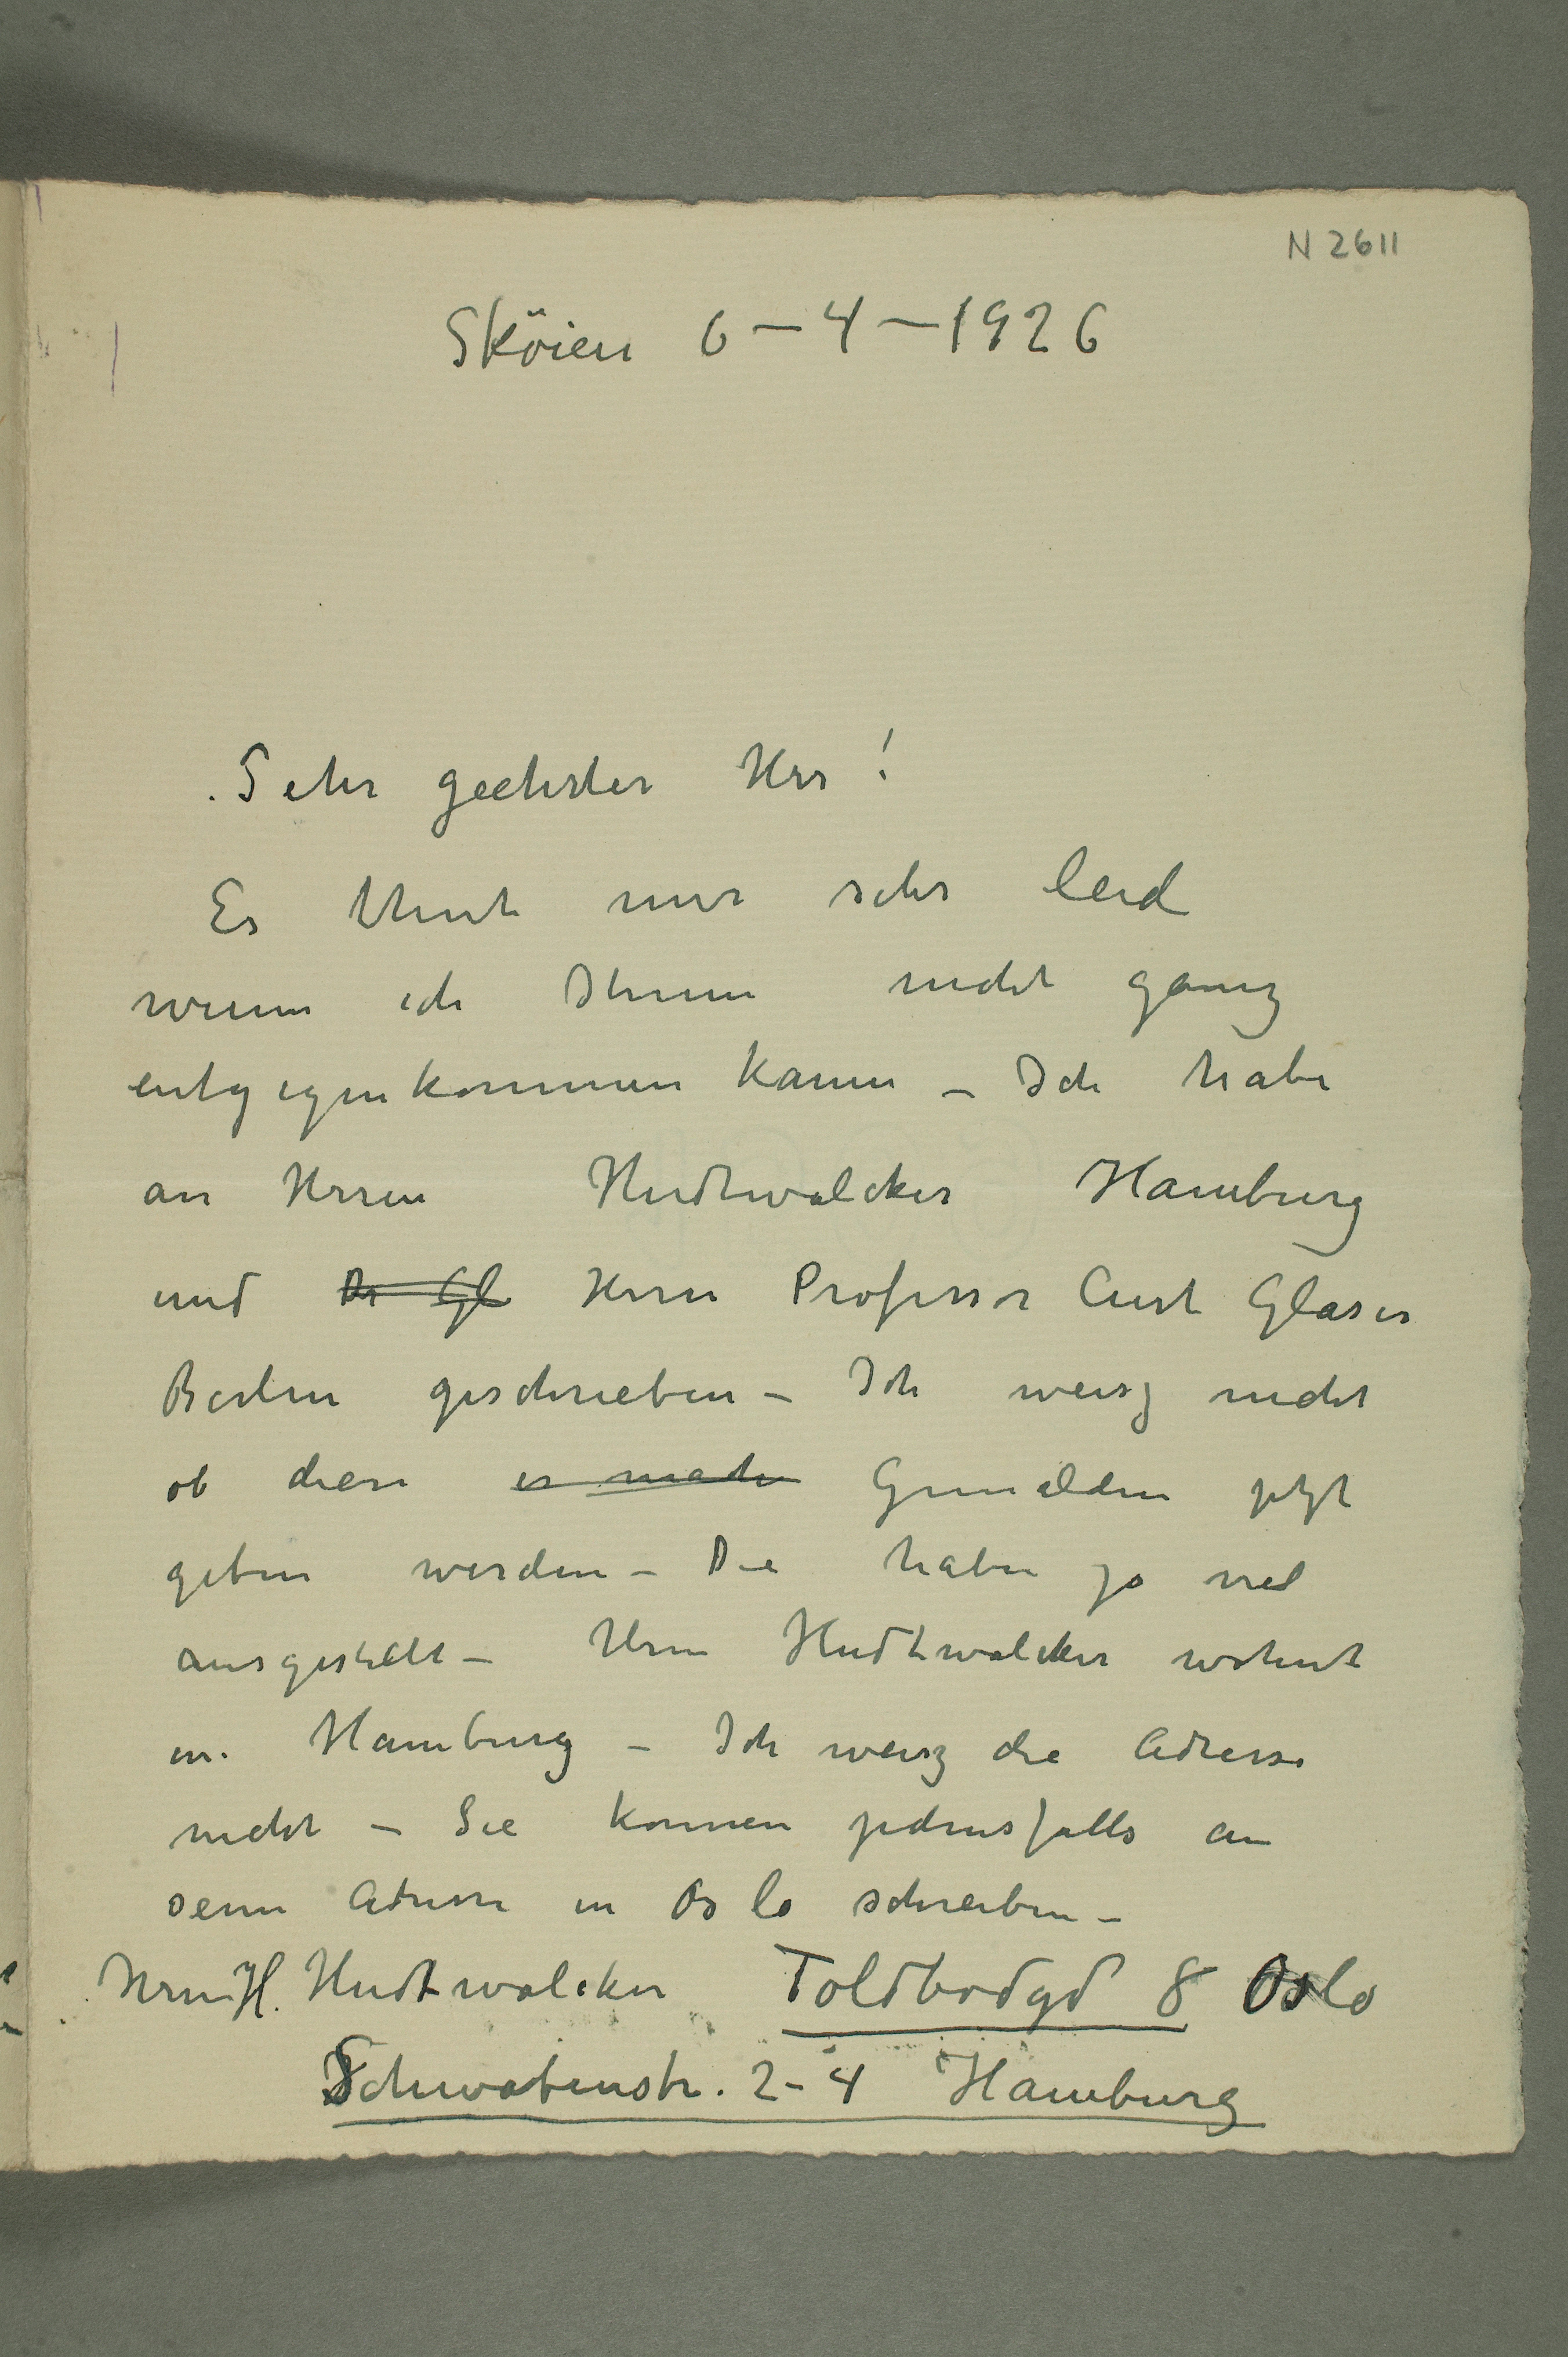 N 2611
Sköien 6 – 4 – 1926
Sehr geehrter Herr!
Es thut mir sehr leid
wenn ich Ihnen nicht ganz
entgegenkommen kann – Ich habe
an Herrn Hudtwalcker Hamburg
und Dr Gl Herrn Professor Curt Glaser
Berlin geschrieben – Ich weisz nicht
ob diese es mache Gemälden jetzt
geben werden – Die haben ja viel
ausgestellt – Herrn Hudtwalcker wohnt
in Hamburg – Ich weisz die Adresse
nicht – Sie konnen jedensfalls an
seine Adresse in Oslo schreiben –
Herrn H. Hudtwalcker Toldbodgd 8 Oslo
Schwabenstr. 2-4 Hamburg